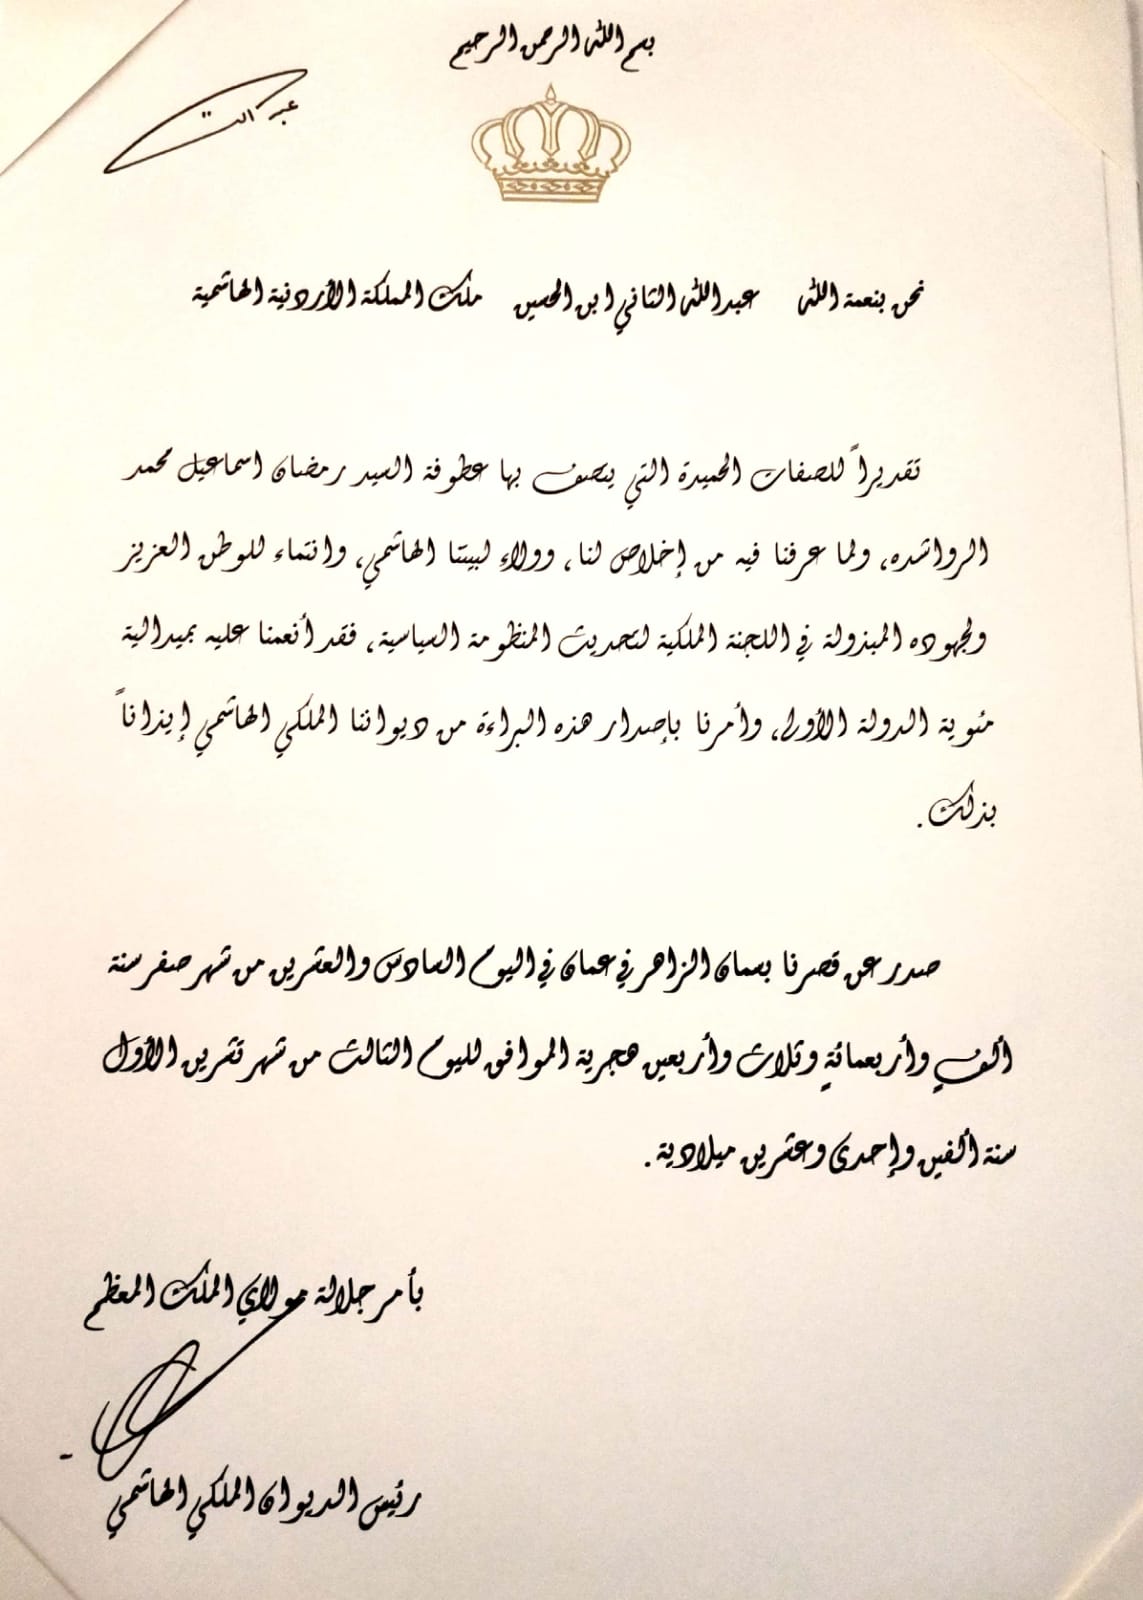 بسم الله الرحمن الرحيم
عبد الله
نحن بنعمة الله عبدالله الثاني ابن الحسين ملك المملكة الأردنية الهاشمية
تقديراً للصفات الحميدة التي يتصف بها عطوفة السيد رمضان اسماعيل محمد
الرواشده، ولما عرفنا فيه من إخلاص لنا، وولاء لبيتنا الهاشمي، وانتماء للوطن العزيز
ولجهوده المبذولة في اللجنة الملكية لتحديث المنظومة السياسية، فقد أنعمنا عليه بميدالية
مئوية الدولة الأولى، وأمرنا بإصدار هذه البراءة من ديواننا الملكي الهاشمي إيذاناً
بذلك.
صدر عن قصرنا بسمان الزاهر في عمان في اليوم السادس والعشرين من شهر صفر سنة
ألفٍ وأربعمائةٍ وثلاث وأربعين هجرية الموافق لليوم الثالث من شهر تشرين الأول
سنة ألفين وإحدى وعشرين ميلادية.
بأمر جلالة مولاي الملك المعظم
رئيس الديوان الملكي الهاشمي